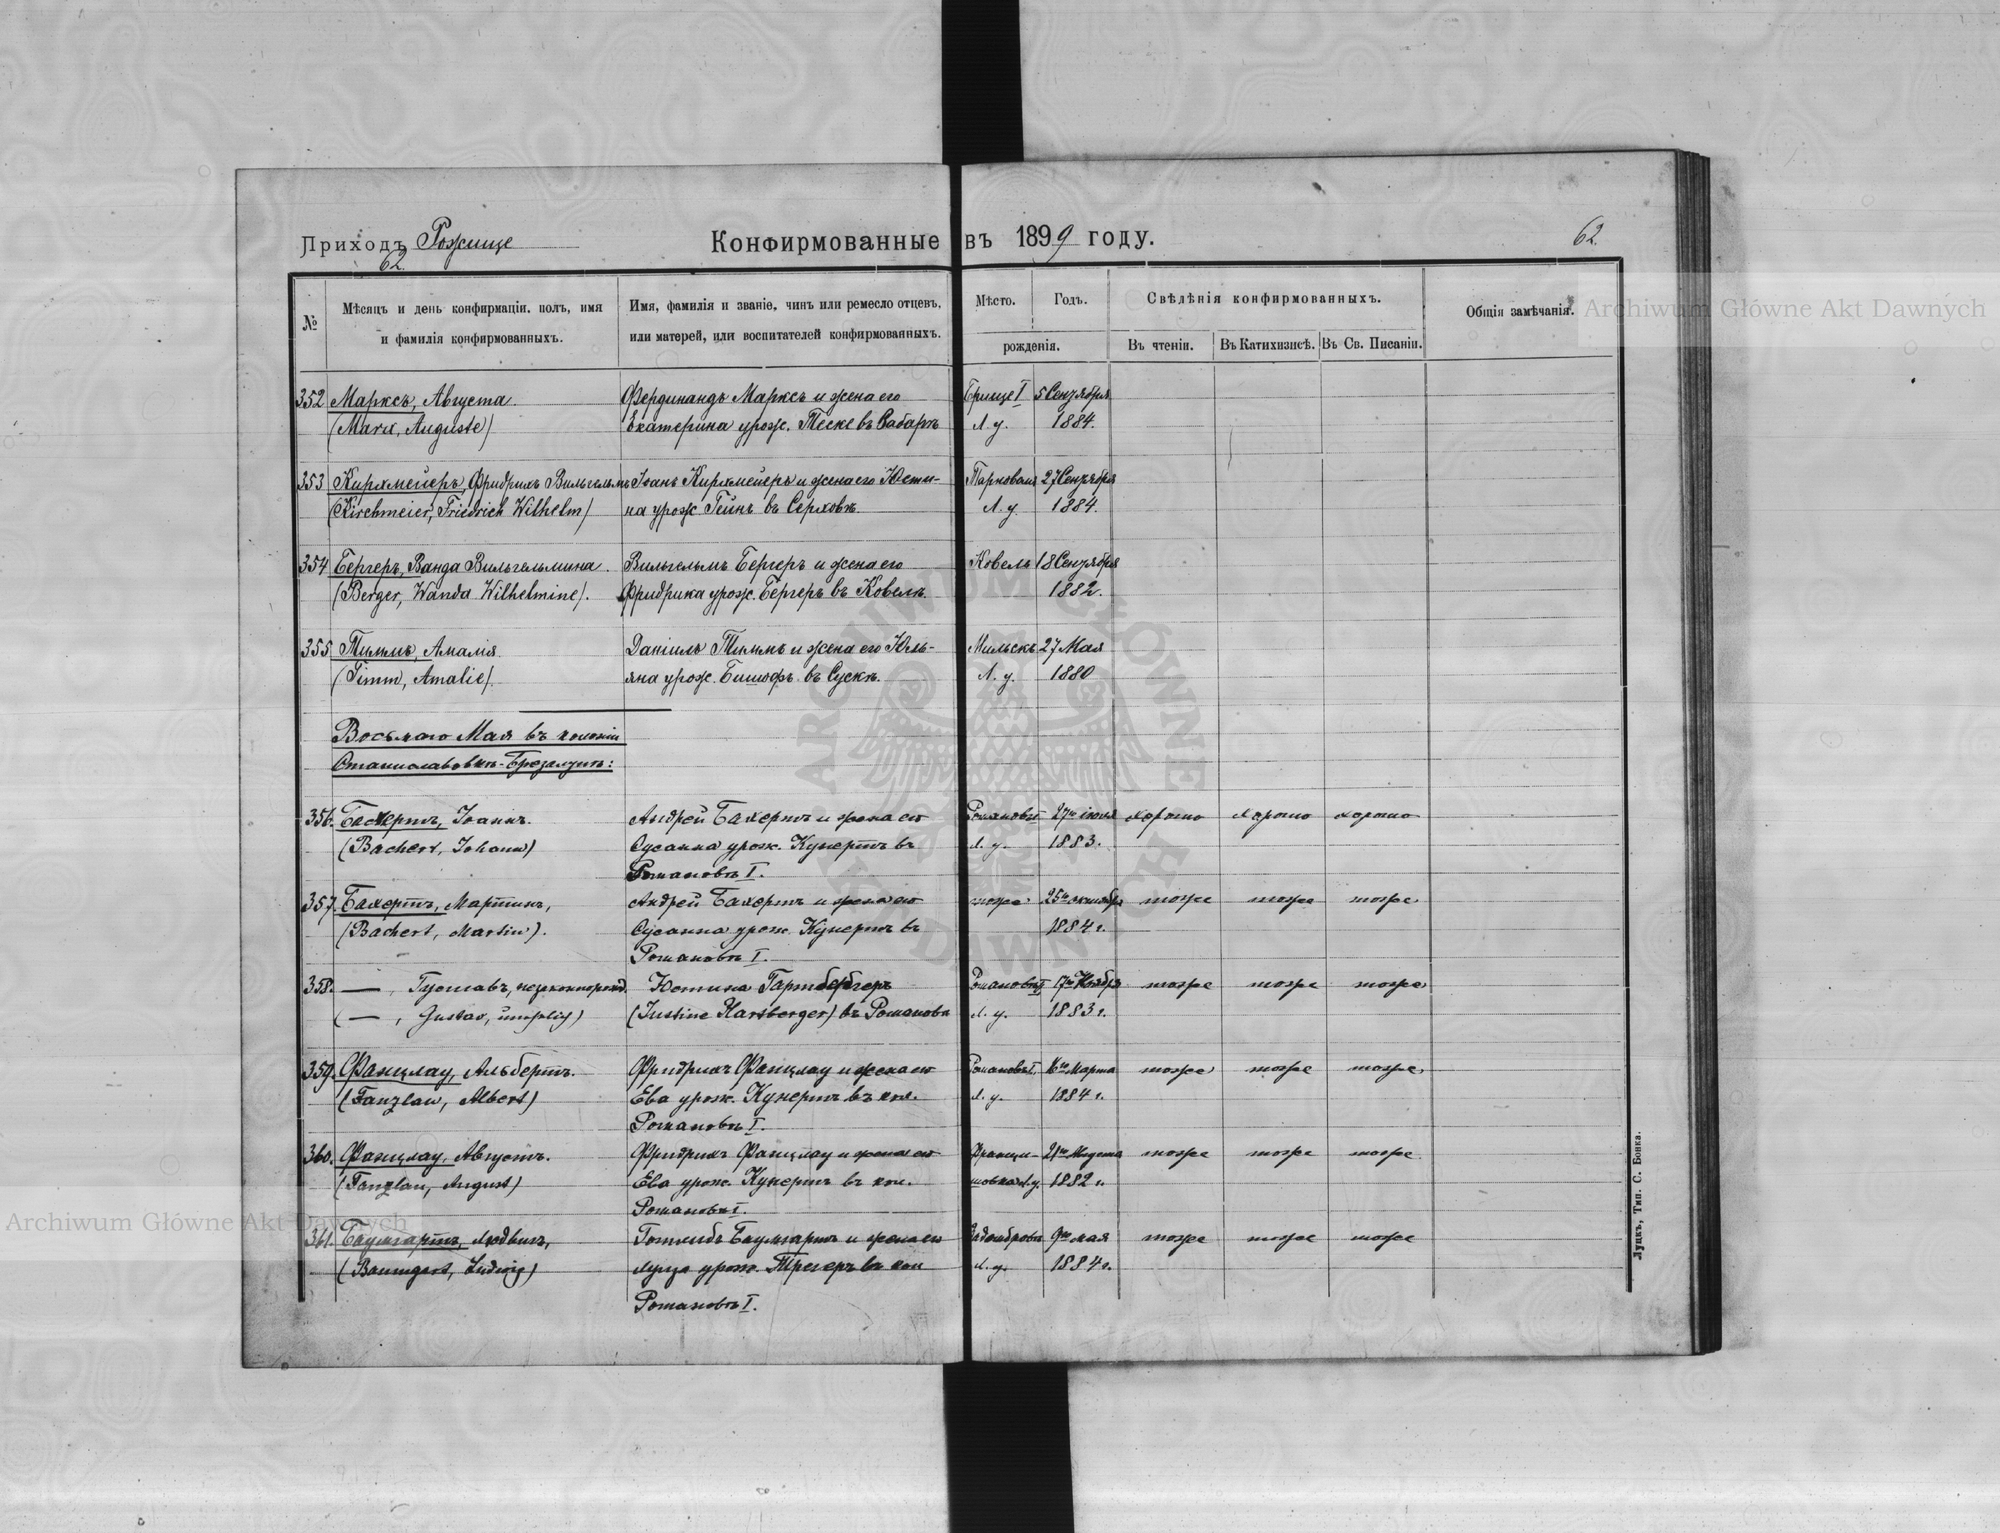 Приходъ Рожище
62.
Конфирмованные въ 1899 году.
62.
№
Мѣсяцъ и день конфирмаціи, полъ, имя
и фамилія конфирмованныхъ.
Имя, фамилія и званіе, чинъ или ремесло отцевъ,
или матерей, или воспитателей конфирмованныхъ.
Мѣсто.
Годъ.
рожденія.
Свѣдѣнія конфирмованныхъ.
Въ чтеніи.
Въ Катихизисѣ.
Въ Св. Писаніи.
Общія замѣчанія.
352 Марксъ, Августа. Фердинандъ Марксъ и жена его Брище I 5 Сентября
(Marx, Auguste) Екатерина урож. Теске въ Сабарѣ Л. у. 1884.
353 Кирхмейеръ, Фридрихъ Вильгельмъ Іоанъ Кирхмейеръ и жена его Юсти- 27 Сентября
(Kirchmeier, Friedrich Wilhelm) на урож. Гейнъ въ Серховѣ. Л. у. 1884.
354 Бергеръ, Ванда Вильгельмина. Вильгельмъ Бергеръ и жена его Ковель 18 Сентября
(Berger, Wanda Wilhelmine). Фридрика урож. Бергеръ въ Ковелѣ. 1882.
355 Тиммъ, Амалія. Даніилъ Тиммъ и жена его Юль- Мильскъ 27 Мая
(Timm, Amalie). яна урож. Бишофъ въ Сускѣ. Л. у. 1880
Восьмаго Мая въ колоніи
Станиславовкѣ-Брезалупъ:
356. Бахертъ, Іоаннъ. Андрей Бахертъ и жена его Романовъ I 27го іюля хорошо хорошо хорошо
(Bachert, Johann) Сусанна урож. Кунертъ въ Л. у. 1883.
Романовѣ I.
357. Бахертъ, Мартинъ, Андрей Бахертъ и жена его тоже 25го октября тоже тоже тоже
(Bachert, Martin). Сусанна урож. Кунертъ въ 1884 г.
Романовѣ I.
358. —, Густавъ, незаконнорожд. Юстина Гартбергеръ Романовъ I, 17го Ноября тоже тоже тоже
(—, Gustav, unehlich) (Justine Hartberger) въ Романовѣ Л. у. 1883 г.
359. Фанцлау, Альбертъ. Фридрихъ Фанцлау и жена его Романовъ I. 16го Марта тоже тоже тоже
(Fanzlau, Albert) Ева урож. Кунертъ въ кол. Л. у. 1884 г.
Романовѣ I.
360. Фанцлау, Августъ. Фридрихъ Фанцлау и жена его Францишовка Л. у. 21го Августа тоже тоже тоже
(Fanzlau, August) Ева урож. Кунертъ въ кол. 1882 г.
Романовѣ I.
361. Баумгартъ, Людвигъ, Готлибъ Баумгартъ и жена его 9го мая тоже тоже тоже
(Baumgart, Ludwig) Луиза урож. Трегеръ въ кол. Л. у. 1884 г.
Романовѣ I.
Луцкъ, Тип. С. Бонка.
Archiwum Główne Akt Dawnych
Archiwum Główne Akt Dawnych
ARCHIWUM GŁÓWNE AKT DAWNYCH